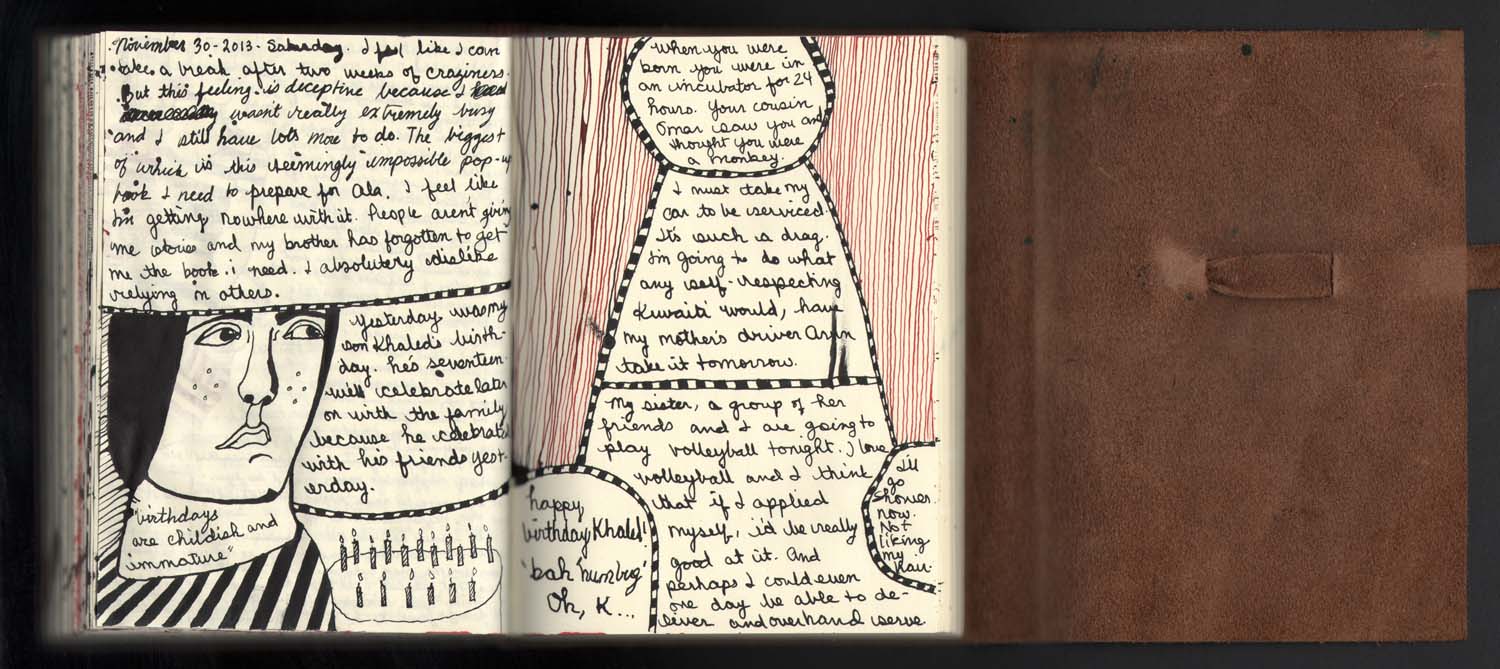 November 30-2013. Saturday. I feel like I can
take a break after two weeks of craziness.
But this feeling is deceptive because I
wasn't really extremely busy
and I still have lots more to do. The biggest
of which is this seemingly impossible pop-up
book I need to prepare for Ala. I feel like
I'm getting nowhere with it. People aren't giving
me stories and my brother has forgotten to get
me the book i need. I absolutely dislike
relying on others.
Yesterday was my
son Khaled's birth-
day. he's seventeen.
we'll celebrate later
on with the family
because he celebrated
with his friends yest-
erday.
"birthdays
are childish and
immature"
When you were
born you were in
an incubator for 24
hours. Your cousin
Omar saw you and
thought you were
a monkey.
I must take my
car to be serviced.
It's such a drag.
I'm going to do what
any self-respecting
Kuwaiti would, have
my mother's driver
take it tomorrow.
My sister, a group of her
friends and I are going to
play volleyball tonight. I love
volleyball and I think
that if I applied
myself, i'd be really
good at it. And
perhaps I could even
one day be able to de-
liver and overhand serve
happy
birthday Khaled!
"bah humbug"
Oh, K...
I'll
go
shower
now.
Not
liking
my
hair.